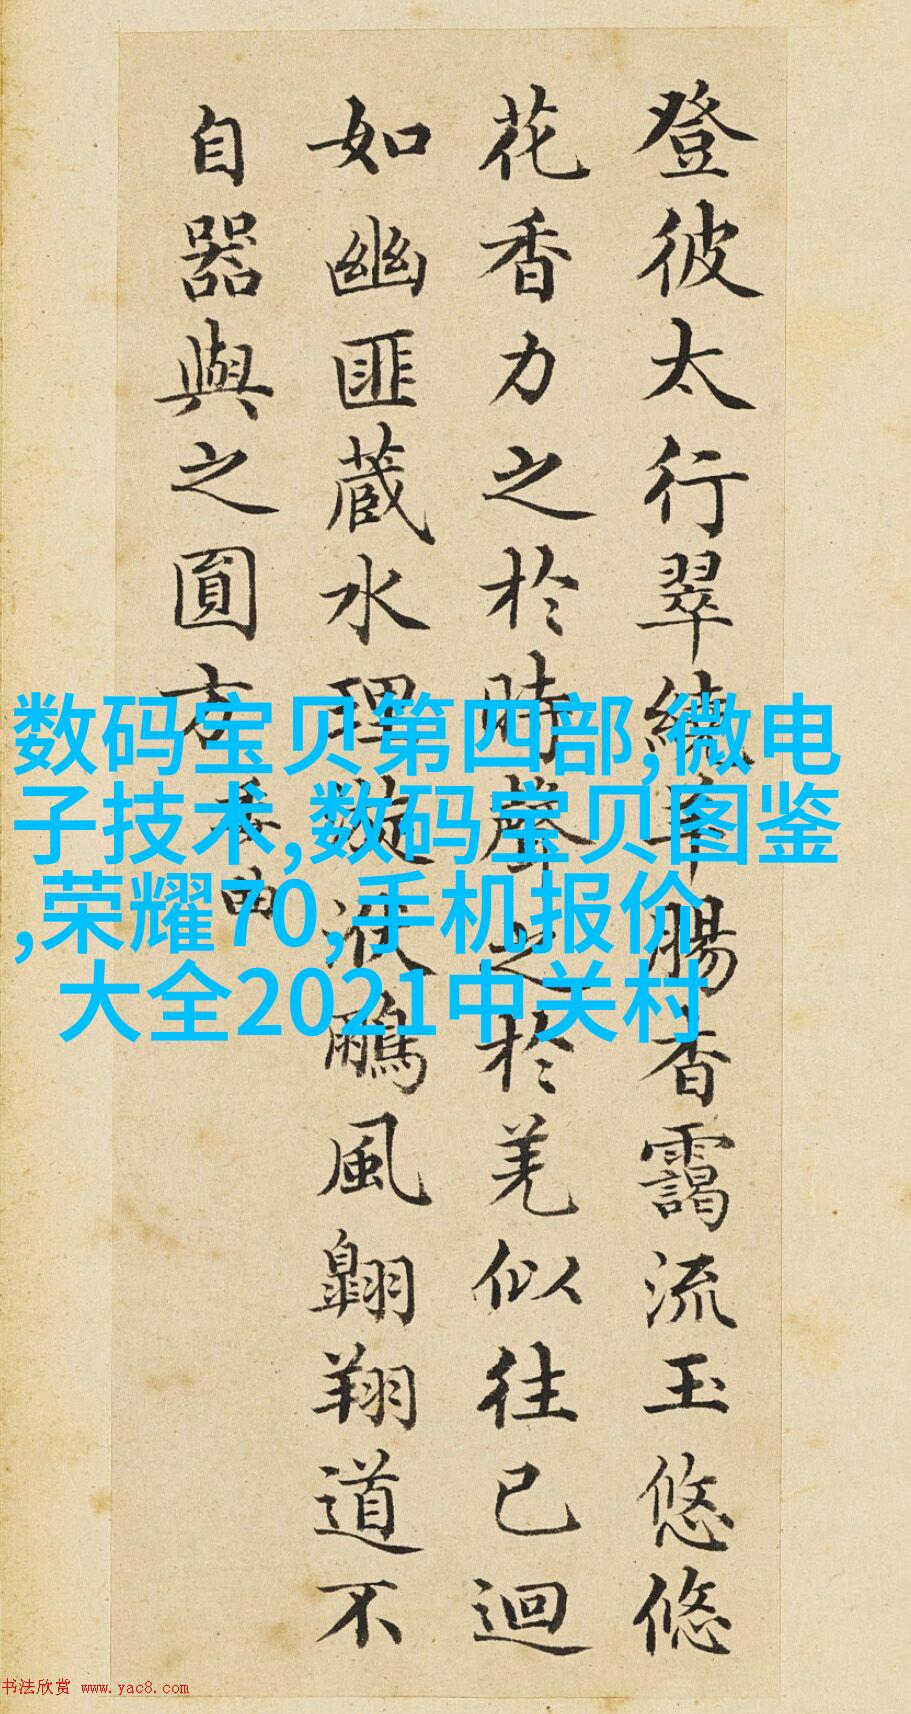 登彼太行翠繞羊腸杳靄流玉悠悠
花香力之於時聲之於羌似往已迴
如幽匪蔵水理漩洑鵬風翺翔道不
自器與之圓方
委曲
数码宝贝第四部,微电
子技术,数码宝贝图鉴
,荣耀70,手机报价
大全2021中关村
书法欣赏 www.yac8.com